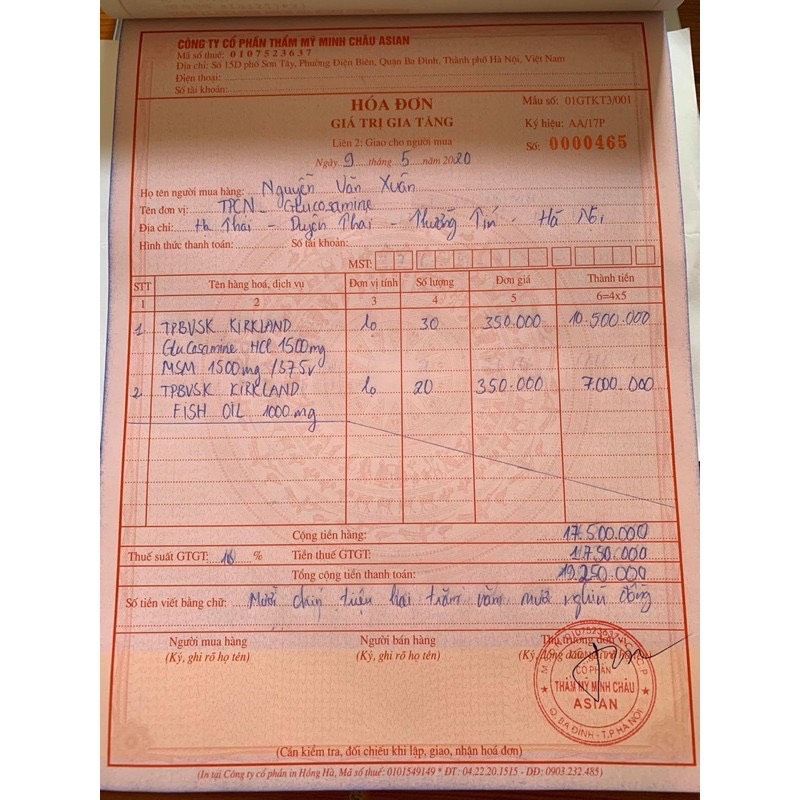 CÔNG TY CỔ PHẦN THẨM MỸ MINH CHÂU ASIAN
Mã số thuế: 0107523637
Địa chỉ: Số 15D phố Sơn Tây, Phường Điện Biên, Quận Ba Đình, Thành phố Hà Nội, Việt Nam
Điện thoại:
Số tài khoản:
HÓA ĐƠN
GIÁ TRỊ GIA TĂNG
Mẫu số: 01GTKT3/001
Ký hiệu: AA/17P
Liên 2: Giao cho người mua
Số: 0000465
Ngày 9 tháng 5 năm 2020
Họ tên người mua hàng: Nguyễn Văn Xuân
Tên đơn vị: TPCN - Glucosamine
Địa chỉ: Hạ Thái - Duyên Thái - Thường Tín - Hà Nội
Hình thức thanh toán: Số tài khoản:
MST:
STT Tên hàng hoá, dịch vụ Đơn vị tính Số lượng Đơn giá Thành tiền
1 2 3 4 5 6=4x5
1 TPBVSK KIRKLAND lo 30 350.000 10.500.000
Glucosamine HCl 1500mg
MSM 1500mg /375v
2 TPBVSK KIRKLAND lo 20 350.000 7.000.000
FISH OIL 1000mg
Cộng tiền hàng: 17.500.000
Thuế suất GTGT: 10 % Tiền thuế GTGT: 1.750.000
Tổng cộng tiền thanh toán: 19.250.000
Số tiền viết bằng chữ: Mười chín triệu hai trăm năm mươi nghìn đồng
Người mua hàng Người bán hàng Thủ trưởng đơn vị
(Ký, ghi rõ họ tên) (Ký, ghi rõ họ tên) (Ký, đóng dấu, ghi rõ họ tên)
CỔ PHẦN
THẨM MỸ MINH CHÂU
ASIAN
Q. BA ĐÌNH - T.P HÀ NỘI
(Cần kiểm tra, đối chiếu khi lập, giao, nhận hoá đơn)
(In tại Công ty cổ phần in Hồng Hà, Mã số thuế: 0101549149 * ĐT: 04.22.20.1515 - DĐ: 0903.232.485)